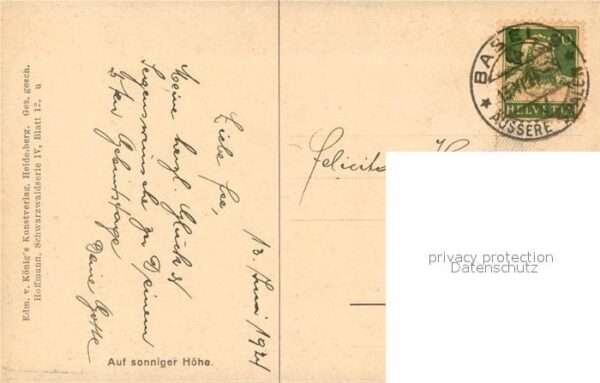 Edm. v. König's Kunstverlag, Heidelberg. Ges. gesch.
Hoffmann, Schwarzwaldserie IV, Blatt 12. u
13. Juni 1921
Liebe
Meine herzl. Glück &
Segenswünsche zu Deinem
Geburtstage
Deine Gotte
Auf sonniger Höhe.
BASEL
AUSSERE
HELVETIA
privacy protection
Datenschutz